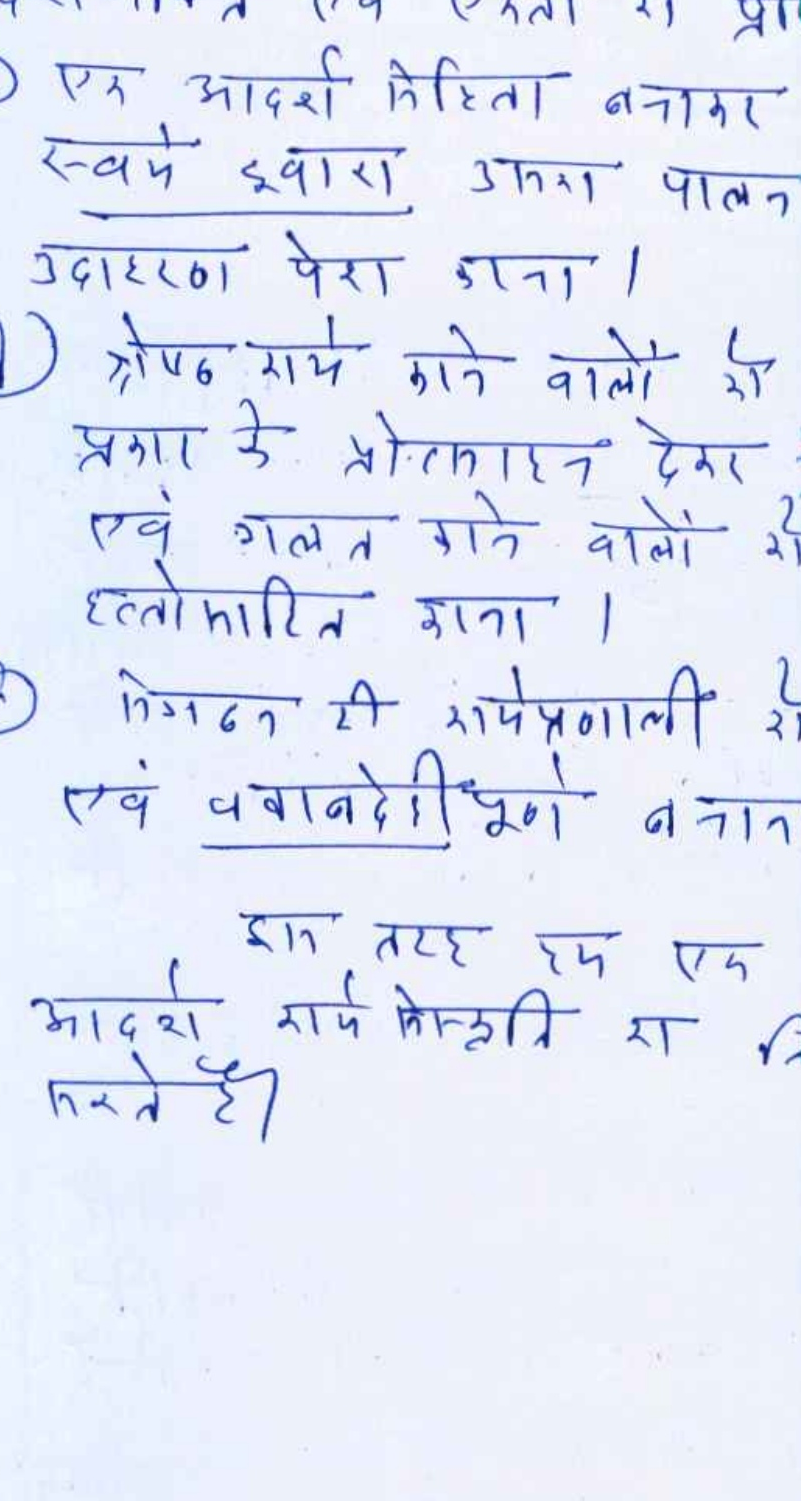 एवं एकता का
एक आदर्श संहिता बनाकर
स्वयं द्वारा उसका पालन
उदाहरण पेश करना।
) श्रेष्ठ कार्य करने वालों को
प्रकार के प्रोत्साहन देकर
एवं गलत करने वालों को
हत्तोसाहित करना।
) संगठन की कार्यप्रणाली को
एवं जवाबदेहीपूर्ण बनाना
इस तरह हम एक
आदर्श कार्य संस्कृति का
करते हैं।